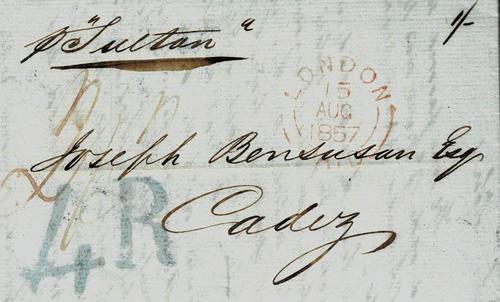 p "Sultan" 1/-
LONDON
15
AUG
1857
Joseph Bensusan Esq
4R
Cadiz